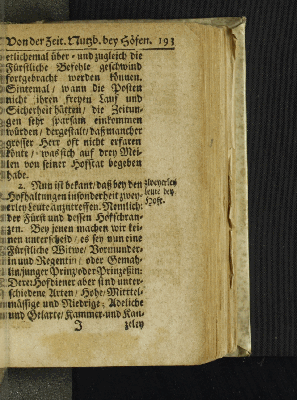 Von der Zeit. Nutzb. bey Höfen. 193
etlichemal über- und zugleich die
Fürstliche Befehle geschwind
fortgebracht werden können.
Sintemal / wann die Posten
nicht ihren freyen Lauf und
Sicherheit hätten / die Zeitun-
gen sehr sparsam einkommen
würden / dergestalt / daß mancher
grosser Herr oft nicht erfaren
könte / was sich auf drey Mei-
len von seiner Hofstat begeben
habe.
2. Nun ist bekant / daß bey den
Hofhaltungen insonderheit zwey-
erley Leute anzutreffen. Nemlich:
der Fürst und dessen Hofschran-
zen. Bey jenen machen wir kei-
nen unterscheid / es sey nun eine
Fürstliche Witwe / Vormunder-
in und Regentin / oder Gemah-
lin / junger Prinz / oder Prinzeßin:
Derer Hofdiener aber sind unter-
schiedene Arten / Hohe / Mittel-
mässige und Niedrige: Adeliche
und Gelarte / Kammer- und Kan-
J zeley
zweyerley
leute bey
Hofe.